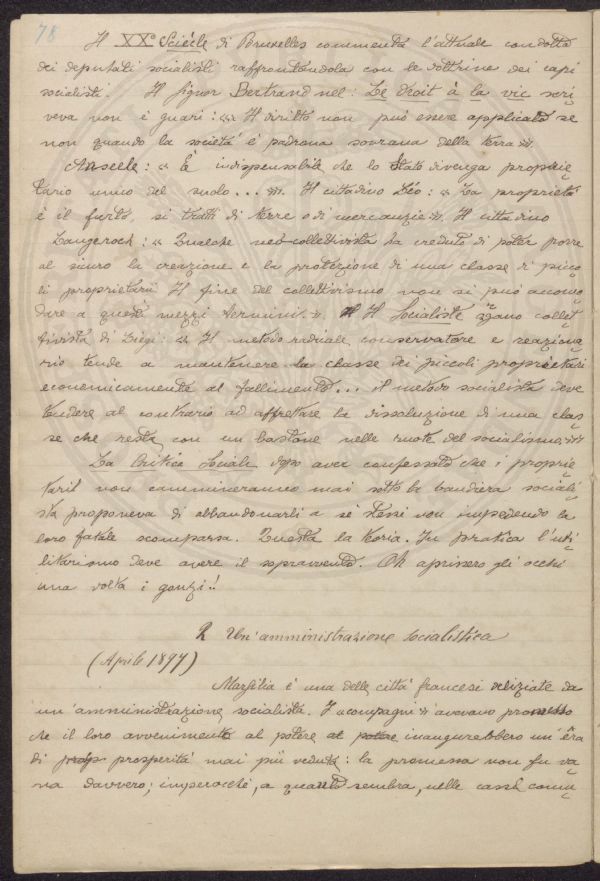 78
Il XX° Sciécle di Bruxelles commenta l'attuale condotta
dei deputati socialisti raffrontandola con le dottrine dei capi
socialisti. Il signor Bertrand nel: Le Droit à la vie scri
veva non è guari: «Il diritto non può esser applicato se
non quando la società é padrona sovrana della terra».
Anseele: «È indispensabile che lo Stato divenga proprie
tario unico del suolo... ». Il cittadino Léo: «La proprietá
è il furto, si tratti di terre o di mercanzie». Il cittadino
Langerock: «Qualche neo-collettivista ha creduto di poter porre
al sicuro la creazione e la protezione di una classe di picco
li proprietarii Il fine del collettivismo non si può accomo
dare a questi mezzi termini.» Il Socialiste organo collet
tivista di Liegi: «Il metodo radicale, conservatore e reaziona
rio tende a mantenere la classe dei piccoli proprietari
economicamente al fallimento... il metodo socialista deve
tendere al contrario ad affrettare la dissoluzione di una clas
se che resta con un bastone nelle ruote del socialismo.»
La Critica Sociale dopo aver confessato che i proprie
tarii non cammineranno mai sotto la bandiera sociali
sta proponeva di abbandonarli a sè stessi non impedendo la
loro fatale scomparsa. Questa la teoria. In pratica l'uti
litarismo deve avere il sopravvento. Oh aprissero gli occhi
una volta i gonzi!
2 Un'amministrazione socialistica
(Aprile 1897)
Marsilia é una delle città francesi deliziate da
un'amministrazione socialista. I «compagni» avevano promesso
che il loro avvenimento al potere al potere inaugurerebbero un'êra
di prosperità mai più veduta: la promessa non fu va
na davvero; imperocché, a quanto sembra, nelle casse comu